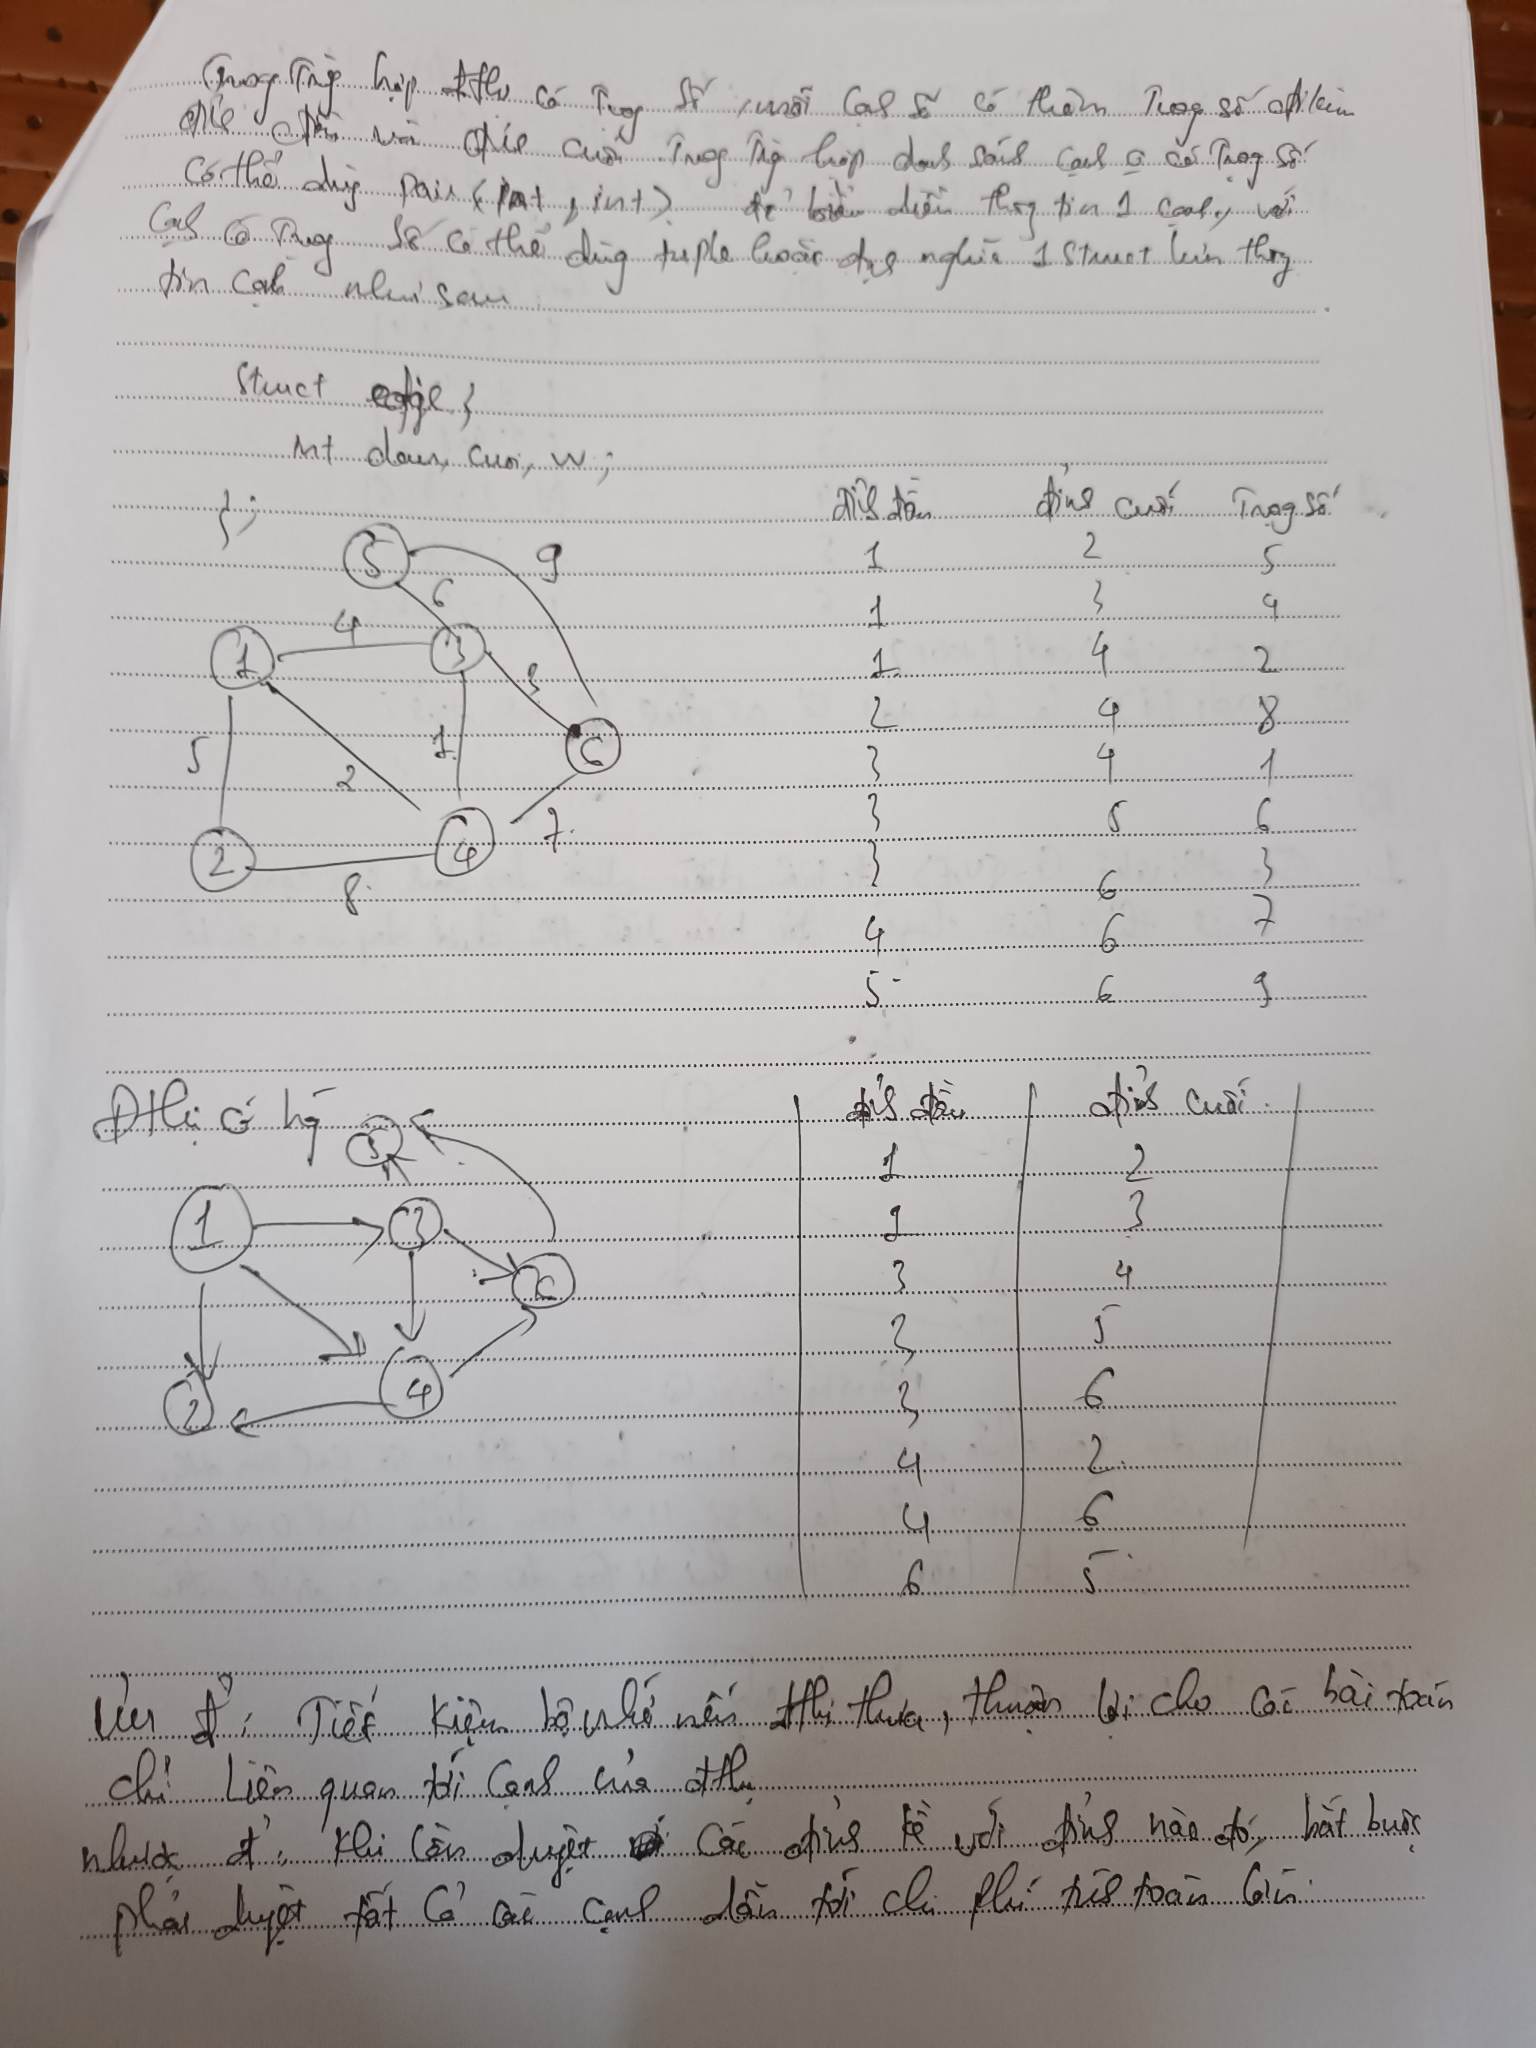 Trog Trg hợp đthị có Trọg số, mỗi cạnh sẽ có thêm Trọg số đi kèm
đỉnh đầu và đỉnh cuối. Trog Trg hợp danh sách cạnh o có Trọg số
có thể dùg pair (int, int) để biểu diễn thôg tin 1 cạnh, với
cạnh có Trọg số có thể dùg tuple hoặc định nghĩa 1 struct lưu thôg
tin cạnh như sau
Struct edge {
int dau, cuoi, w;
};
đỉnh đầu đỉnh cuối Trọg số
1 2 5
1 3 4
1 4 2
2 4 8
3 4 1
3 5 6
3 6 3
4 6 7
5 6 9
5
9
6
1
4
3
3
5
2
1
6
2
8
4
7
Đthị có hg
đỉnh đầu đỉnh cuối
1 2
1 3
3 4
3 5
3 6
4 2
4 6
6 5
5
1
3
6
2
4
Ưu đ: Tiết kiệm bộ nhớ nếu đthị thưa, thuận lợi cho các bài toán
chỉ liên quan tới cạnh của đthị
nhược đ: Khi cần duyệt các đỉnh kề với đỉnh nào đó, bắt buộc
phải duyệt tất cả các cạnh dẫn tới chi phí tính toán lớn.